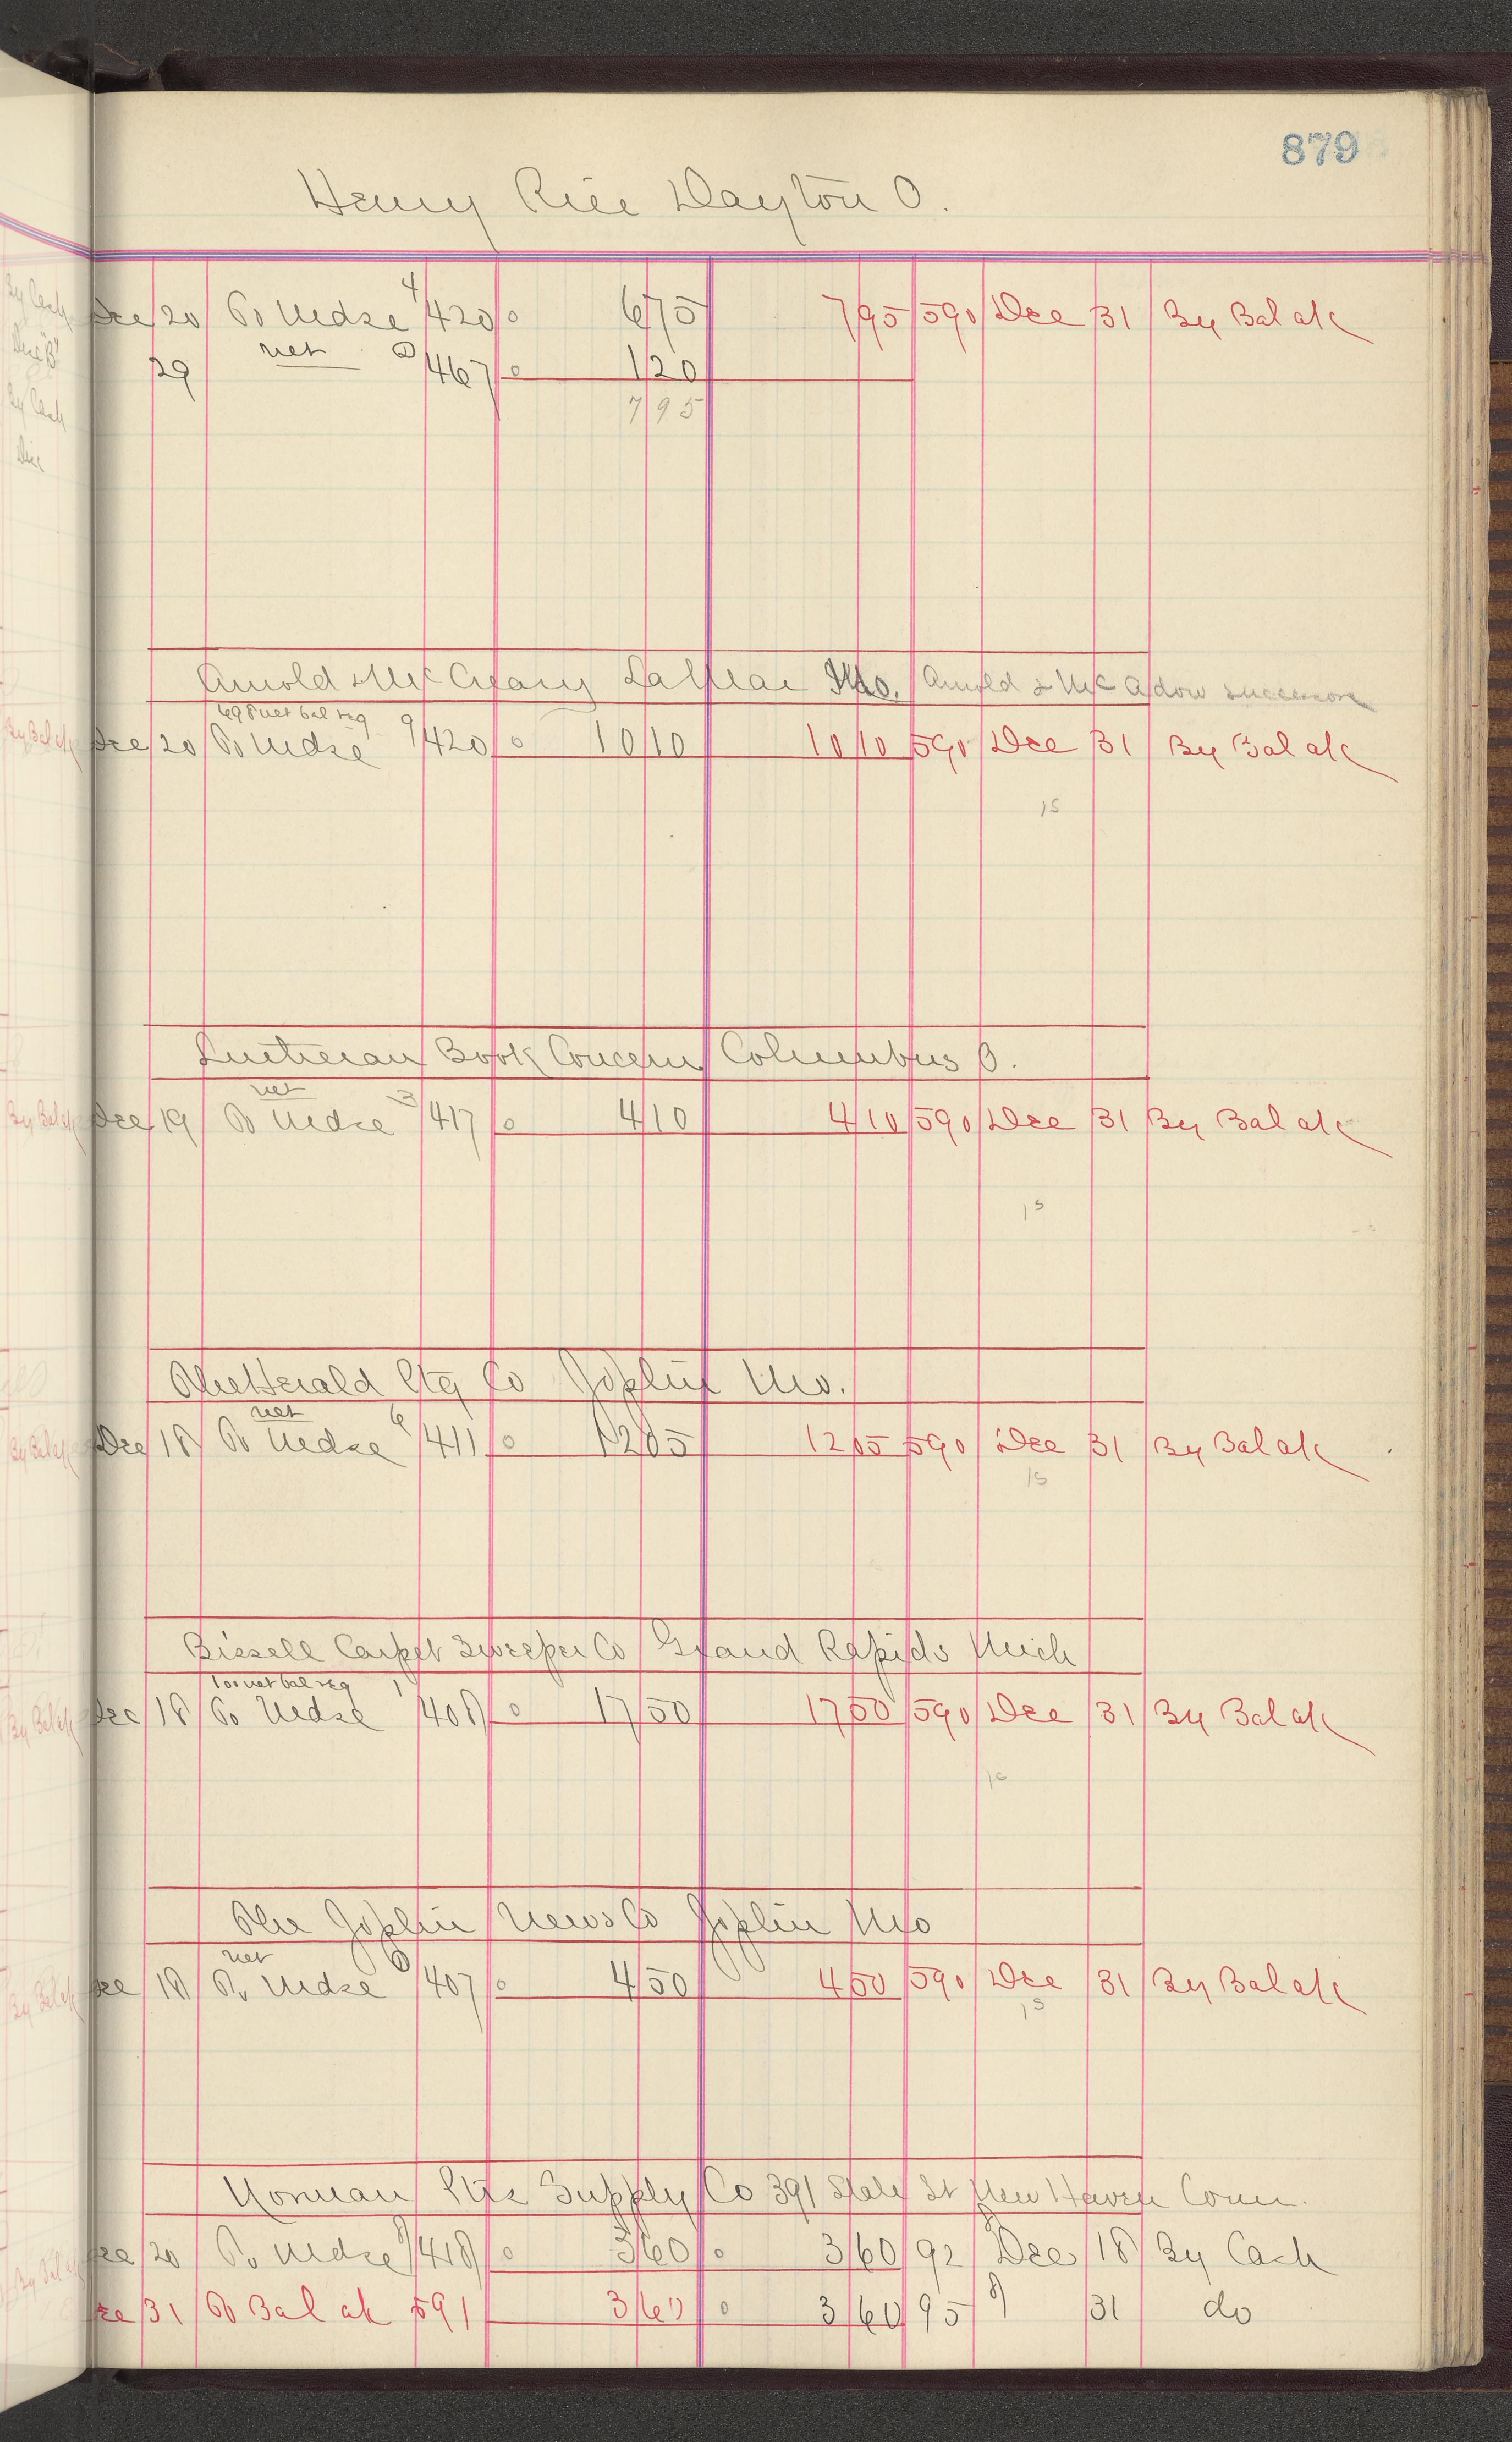 879
Henry Rice Dayton O.
Dec 20 To Mdse 4 420 o 6 75 7 95 590 Dec 31 By Bal a/c
29 net 467 o 1 20
7 95
Arnold & McCreary LaMar Mo. Arnold & McAdow successors
698 net bal reg
Dec 20 To Mdse 9 420 o 10 10 10 10 590 Dec 31 By Bal a/c
15
Lutheran Book Concern Columbus O.
net
Dec 19 To Mdse 3 417 o 4 10 4 10 590 Dec 31 By Bal a/c
15
The Herald Ptg Co Joplin Mo.
net
Dec 18 To Mdse 6 411 o 12 05 12 05 590 Dec 31 By Bal a/c
15
Bissell Carpet Sweeper Co Grand Rapids Mich
100 net bal reg
Dec 18 To Mdse 1 408 o 17 50 17 50 590 Dec 31 By Bal a/c
The Joplin News Co Joplin Mo
net
Dec 18 To Mdse 6 407 o 4 50 4 50 590 Dec 31 By Bal a/c
15
Norman Ptrs Supply Co 391 State St New Haven Conn.
Dec 20 To Mdse 8 418 o 3 60 o 3 60 92 Dec 18 By Cash
Dec 31 To Bal a/c 591 3 60 o 3 60 95 31 do